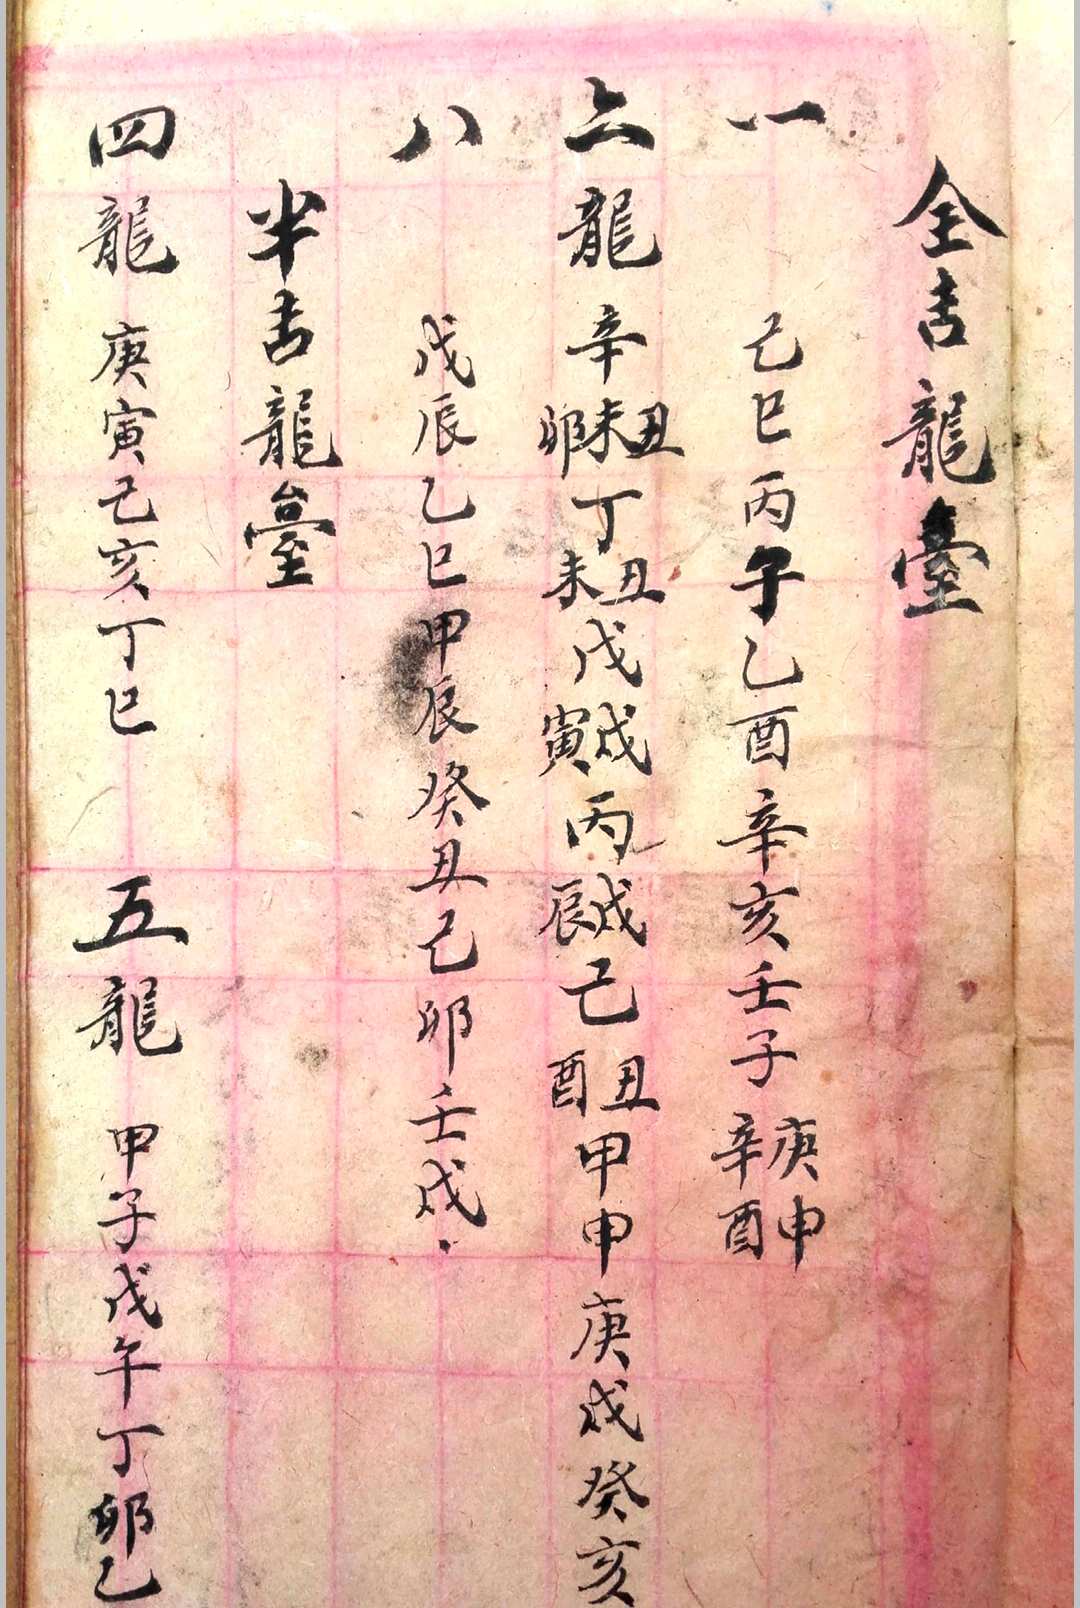 全吉龍臺
一 己巳丙子乙酉辛亥壬子庚申辛酉
六龍 辛丑未卯丁丑未戊戌寅丙戌辰己丑酉甲申庚戌癸亥
八 戊辰乙巳甲辰癸丑己卯壬戌
半吉龍臺
四龍 庚寅己亥丁巳 五龍 甲子戊午丁卯乙